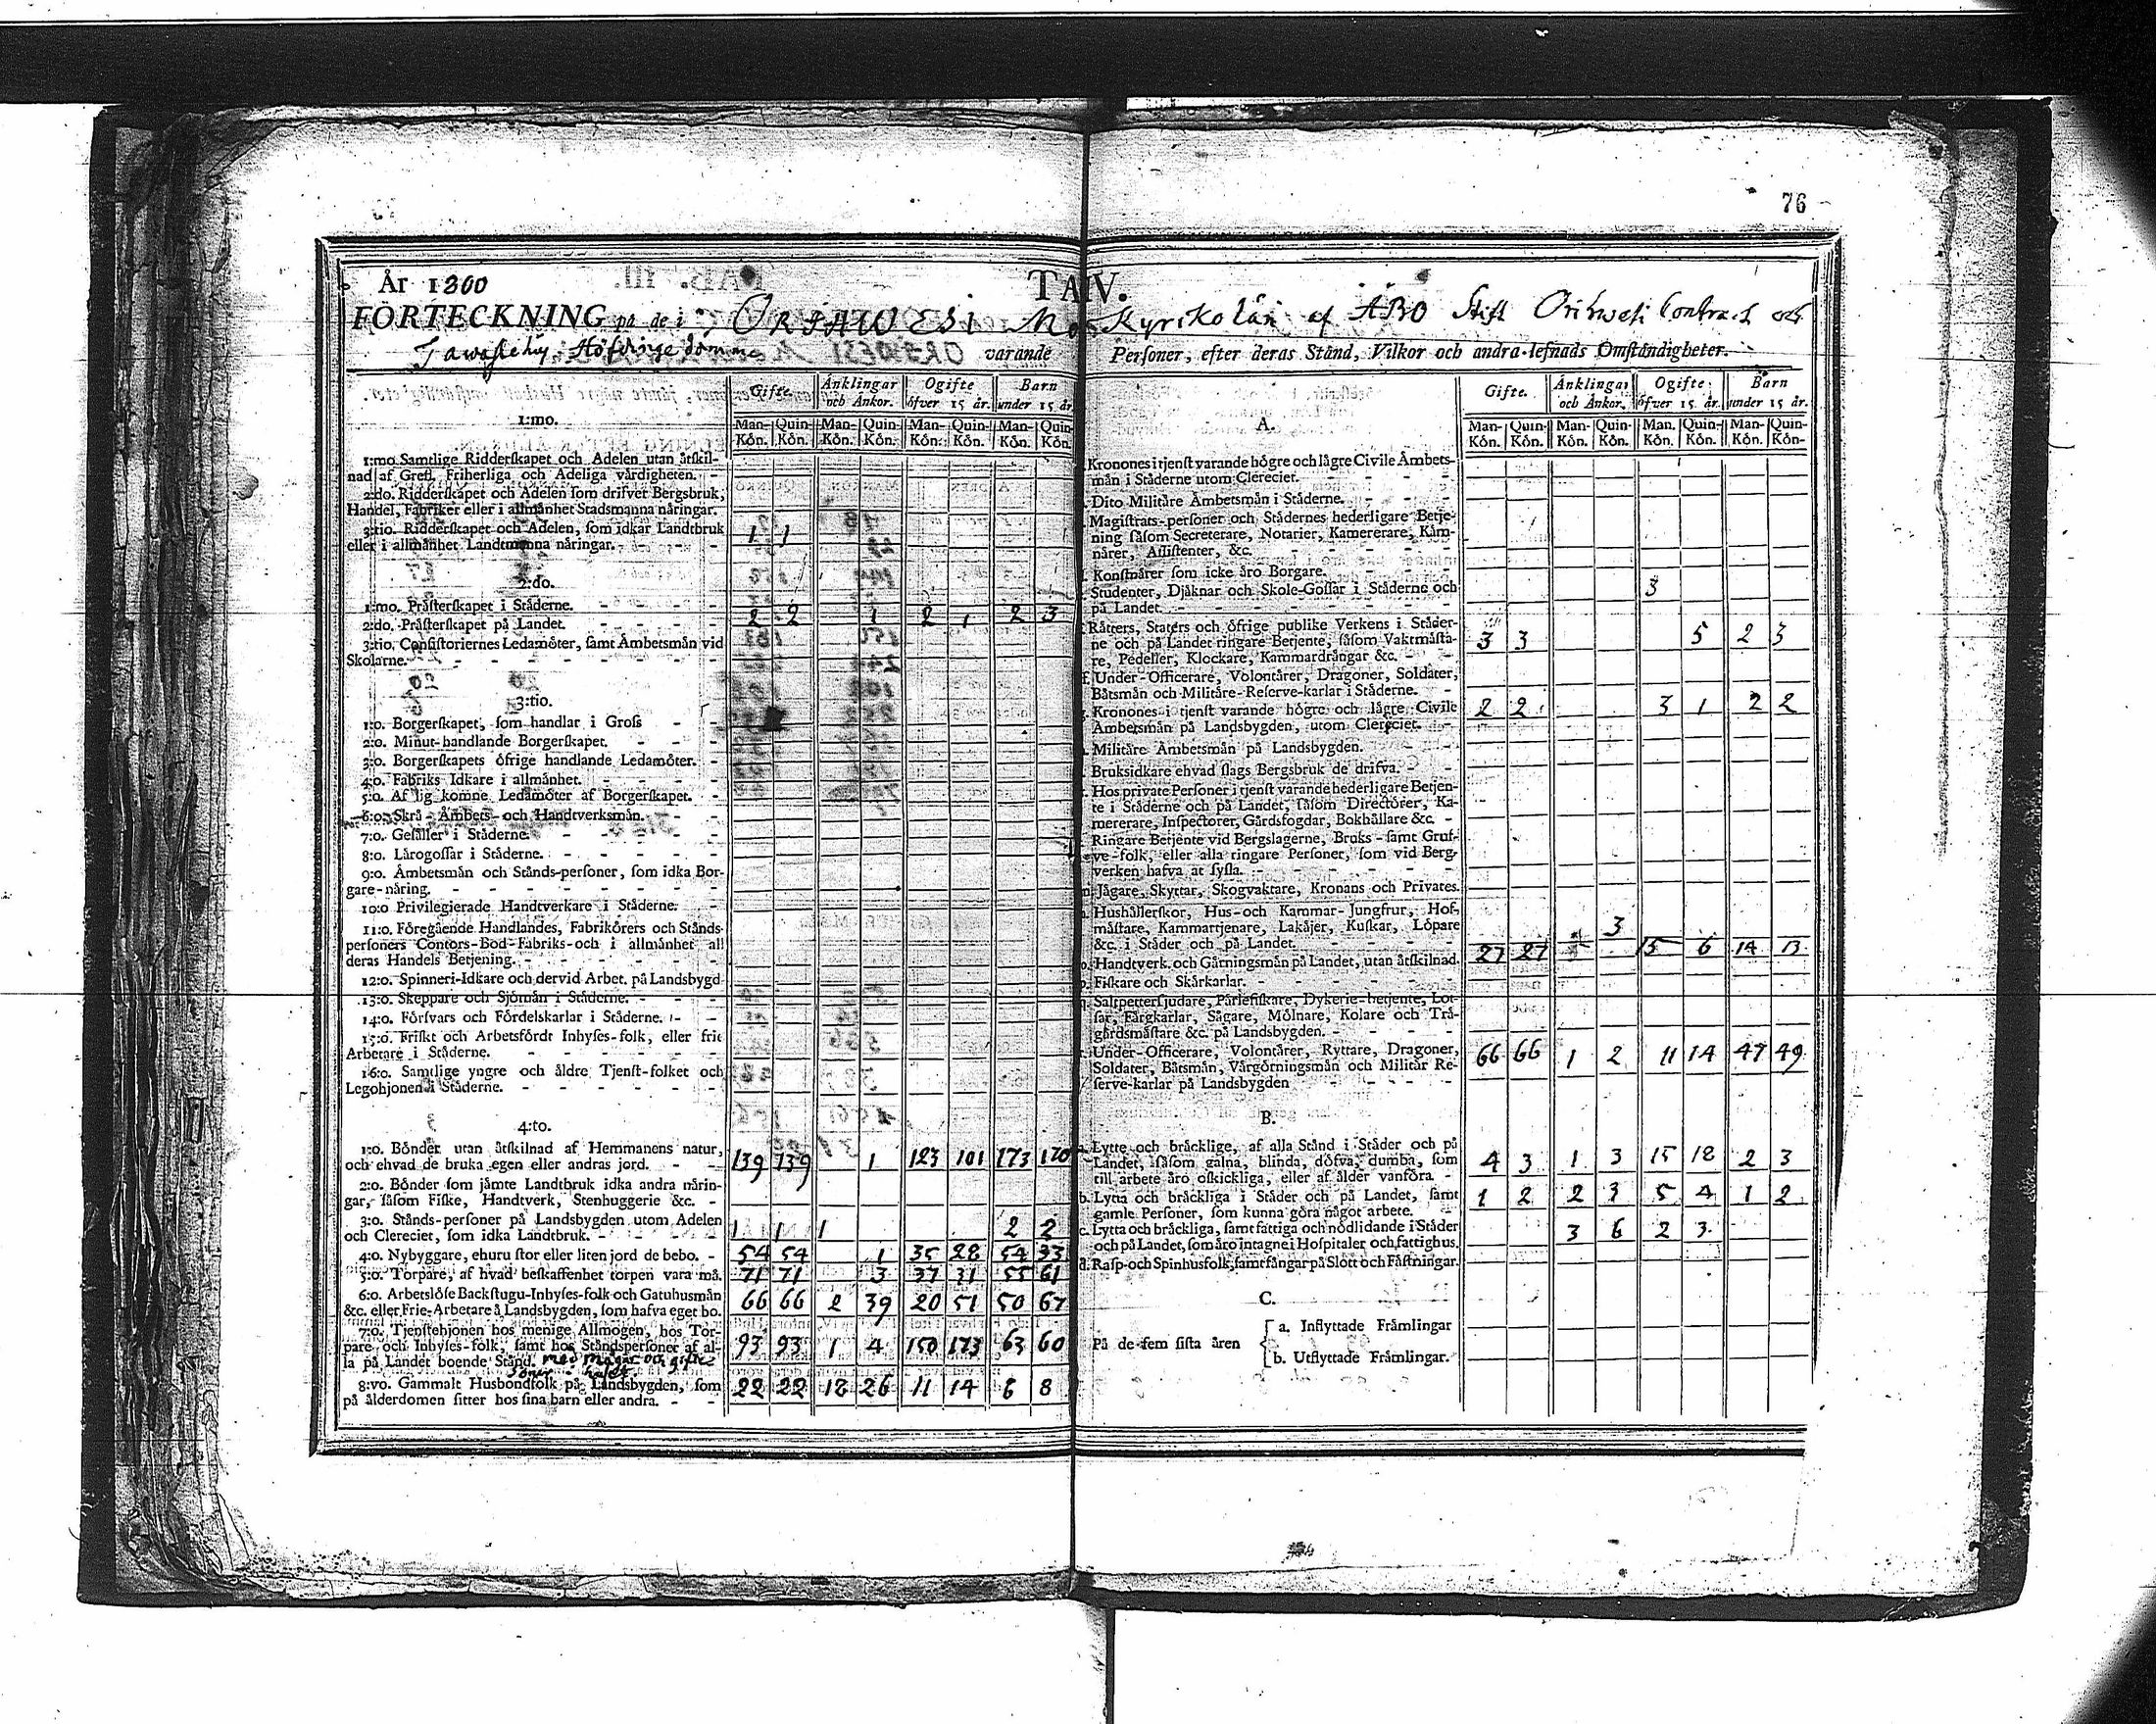 76
År 1800 TAB. IV.
FÖRTECKNING på de i ORIHWESI Kyrikolän af ÅBO Stift Orihwesi Contract och
Tawastehus Höfdingedömme varande Personer, efter deras Stånd, Vilkor och andra lefnads Omständigheter.
Gifte. Änklingar och Änkor. Ogifte öfver 15 år. Barn under 15 år.
Man-Kön. Quin-Kön. Man-Kön. Quin-Kön. Man-Kön. Quin-Kön. Man-Kön. Quin-Kön.
1:mo.
1:mo Samtlige Ridderskapet och Adelen utan åtskil-
nad af Grefl. Friherliga och Adeliga värdigheten.
2:do. Ridderskapet och Adelen som drifver Bergsbruk,
Handel, Fabriker eller i allmänhet Stadsmanna näringar.
3:tio. Ridderskapet och Adelen, som idkar Landtbruk
eller i allmänhet Landtmanna näringar. 1 1
2:do.
1:mo. Prästerskapet i Städerne.
2:do. Prästerskapet på Landet. 2 2 1 2 1 2 3
3:tio. Consistoriernes Ledamöter, samt Ämbetsmän vid
Skolarne.
3:tio.
1:o. Borgerskapet, som handlar i Gross
2:o. Minut-handlande Borgerskapet.
3:o. Borgerskapets öfrige handlande Ledamöter.
4:o. Fabriks Idkare i allmänhet.
5:o. Af lig komne Ledamöter af Borgerskapet.
6:o. Skrå-Ämbets-och Handtverksmän.
7:o. Gesäller i Städerne.
8:o. Lärogossar i Städerne.
9:o. Ämbetsmän och Stånds-personer, som idka Bor-
gare-näring.
10:o Privilegierade Handtverkare i Städerne.
11:o. Föregående Handlandes, Fabrikörers och Stånds-
personers Contors-Bod-Fabriks-och i allmänhet all
deras Handels Betjening.
12:o. Spinneri-Idkare och dervid Arbet. på Landsbygd
13:o. Skeppare och Sjömän i Städerne.
14:o. Försvars och Fördelskarlar i Städerne.
15:o. Friskt och Arbetsfördt Inhyses-folk, eller frie
Arbetare i Städerne.
16:o. Samtlige yngre och äldre Tjenst-folket och
Legohjonen i Städerne.
4:to.
1:o. Bönder utan åtskilnad af Hemmanens natur,
och ehvad de bruka egen eller andras jord. 139 139 1 123 101 173 170
2:o. Bönder som jämte Landtbruk idka andra närin-
gar, såsom Fiske, Handtverk, Stenhuggerie &c.
3:o. Stånds-personer på Landsbygden utom Adelen
och Clereciet, som idka Landtbruk. 1 1 1 2 2
4:o. Nybyggare, ehuru stor eller liten jord de bebo. 54 54 1 35 28 54 33
5:o. Torpare, af hvad beskaffenhet torpen vara må. 71 71 3 37 31 55 61
6:o. Arbetslöse Backstugu-Inhyses-folk och Gatuhusmän
&c. eller Frie-Arbetare å Landsbygden, som hafva eget bo. 66 66 2 39 20 51 50 67
7:o. Tjenstehjonen hos menige Allmogen, hos Tor-
pare och Inhyses-folk, samt hos Ståndspersoner af al-
la på Landet boende Stånd. med mågar och gifte
Söner 93 93 1 4 150 173 63 60
8:vo. Gammalt Husbondfolk på Landsbygden, som
på ålderdomen sitter hos sina barn eller andra. 22 22 18 26 11 14 6 8
Gifte. Änklingar och Änkor. Ogifte öfver 15 år. Barn under 15 år.
Man-Kön. Quin-Kön. Man-Kön. Quin-Kön. Man. Kön. Quin-Kön. Man-Kön. Quin-Kön-
A.
Kronones i tjenst varande högre och lägre Civile Ämbets-
män i Städerne utom Clereciet.
Dito Militäre Ämbetsmän i Städerne.
Magistrats-personer och Städernes hederligare Betje-
ning såsom Secreterare, Notarier, Kamererare, Käm-
närer, Assistenter, &c.
Konstnärer som icke äro Borgare.
Studenter, Djäknar och Skole-Gossar i Städerne och
på Landet. 3
Rätters, Staters och öfrige publike Verkens i Städer-
ne och på Landet ringare Betjente, såsom Vaktmästa-
re, Pedeller, Klockare, Kammardrängar &c. 3 3 5 2 3
Under-Officerare, Volontärer, Dragoner, Soldater,
Båtsmän och Militäre-Reserve-karlar i Städerne.
Kronones i tjenst varande högre och lägre Civile
Ämbetsmän på Landsbygden, utom Clereciet. 2 2 3 1 2 2
Militäre Ämbetsmän på Landsbygden.
Bruksidkare ehvad slags Bergsbruk de drifva.
Hos private Personer i tjenst varande hederligare Betjen-
te i Städerne och på Landet, såsom Directörer, Ka-
mererare, Inspectorer, Gårdsfogdar, Bokhållare &c.
Ringare Betjente vid Bergslagerne, Bruks-samt Gruf-
ve-folk, eller alla ringare Personer, som vid Berg-
verken hafva at sysla.
Jägare, Skyttar, Skogvaktare, Kronans och Privates.
Hushållerskor, Hus-och Kammar-Jungfrur, Hof-
mästare, Kammartjenare, Lakäjer, Kuskar, Löpare
&c. i Städer och på Landet. 3
Handtverk. och Gärningsmän på Landet, utan åtskilnad. 27 27 15 6 14 13
Fiskare och Skärkarlar.
Saltpettersjudare, Pärlefiskare, Dykerie-betjente, Lot-
sar, Färgkarlar, Sågare, Mölnare, Kolare och Trä-
gårdsmästare &c. på Landsbygden.
Under-Officerare, Volontärer, Ryttare, Dragoner,
Soldater, Båtsmän, Vårgörningsmän och Militär Re-
serve-karlar på Landsbygden 66 66 1 2 11 14 47 49
B.
Lytte och bräcklige, af alla Stånd i Städer och på
Landet, såsom galna, blinda, döfva, dumba, som
till arbete äro oskickliga, eller af ålder vanföra 4 3 1 3 15 18 2 3
b. Lytta och bräckliga i Städer och på Landet, samt
gamle Personer, som kunna göra något arbete. 1 2 2 3 5 4 1 2
c. Lytta och bräckliga, samt fattiga och nödlidande i Städer
och på Landet, som äro intagne i Hospitaler och fattighus. 3 6 2 3
d. Rasp-och Spinhusfolk, samt fångar på Slott och Fästningar.
C.
På de fem sista åren
a. Inflyttade Främlingar
b. Utflyttade Främlingar.